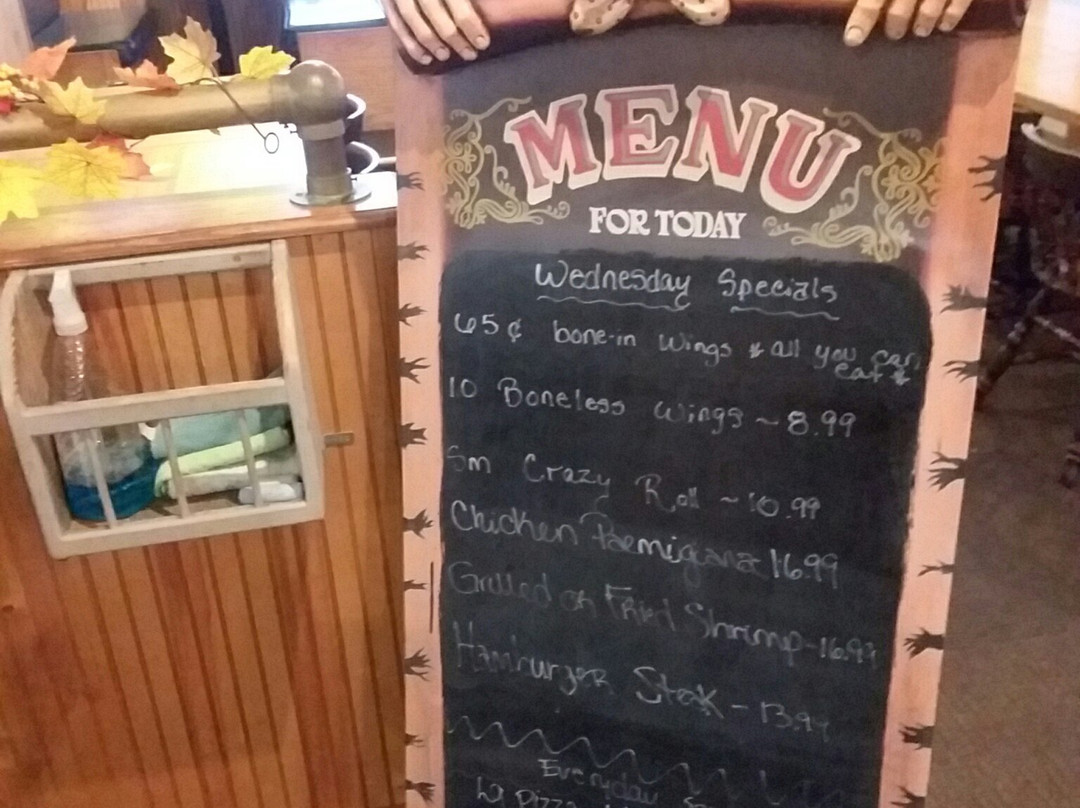 MENU
FOR TODAY
Wednesday Specials
65¢ bone-in Wings * all you can
eat *
10 Boneless Wings ~ 8.99
Sm Crazy Roll ~ 10.99
Chicken Parmigana 16.99
Grilled or Fried Shrimp - 16.99
Hamburger Steak - 13.99
Everyday
Pizza